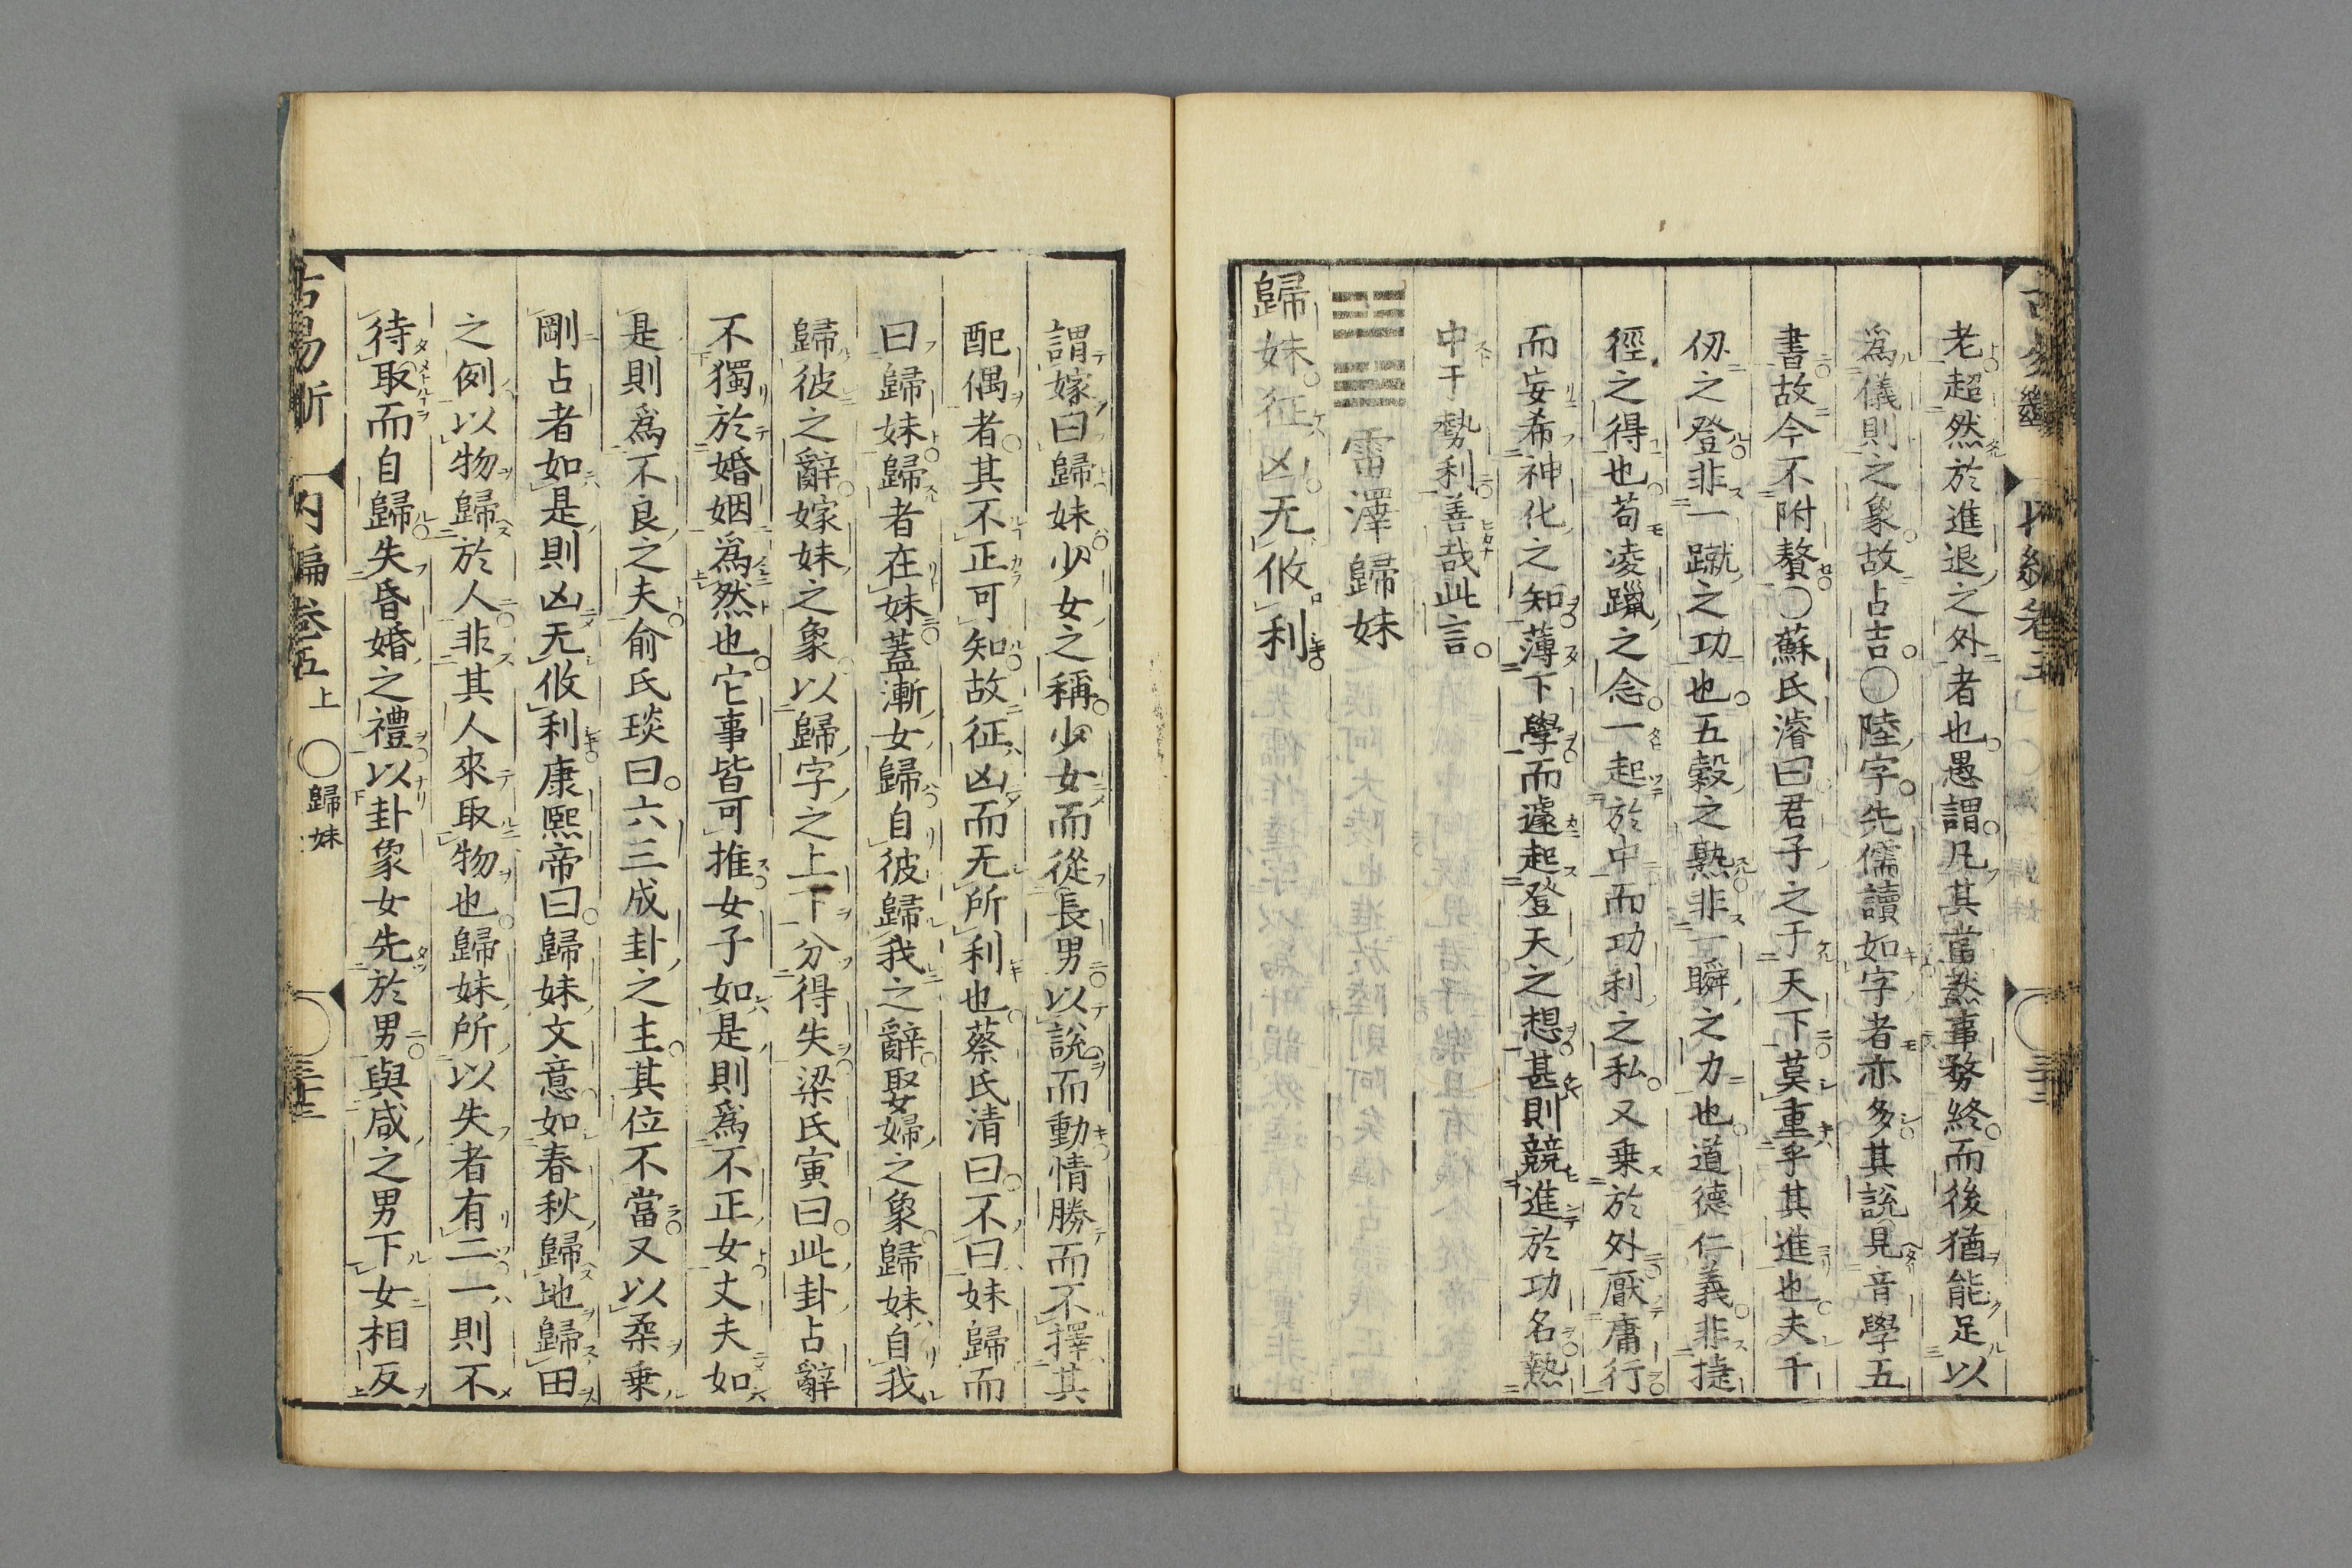 老超然於進退之外者也愚謂凡其當然事務終而後猶能足以
爲儀則之象故占吉○陸字先儒讀如字者亦多其說見音學五
書故今不附贅○蘇氏濬曰君子之于天下莫重乎其進也夫千
仭之登非一蹴之功也五穀之熟非一瞬之力也道德仁義非捷
徑之得也苟凌躐之念一起於中而功利之私又乗於外厭庸行
而妄希神化之知薄下學而遽起登天之想甚則競進於功名熱
中于勢利善哉此言
䷵雷澤歸妹
歸妹征凶无攸利
謂嫁曰歸妹少女之稱少女而從長男以說而動情勝而不擇其
配偶者其不正可知故征凶而无所利也蔡氏清曰不曰妹歸而
曰歸妹歸者在妹蓋漸女歸自彼歸我之辭娶婦之象歸妹自我
歸彼之辭嫁妹之象以歸字之上下分得失梁氏寅曰此卦占辭
不獨於婚姻爲然也它事皆可推女子如是則爲不正女丈夫如
是則爲不良之夫俞氏琰曰六三成卦之主其位不當又以柔乗
剛占者如是則凶无攸利康熙帝曰歸妹文意如春秋歸地歸田
之例以物歸於人非其人來取物也歸妹所以失者有二一則不
待取而自歸失昏婚之禮以卦象女先於男與咸之男下女相反
古易斷 内編卷五上 ○歸妹 ○三十三